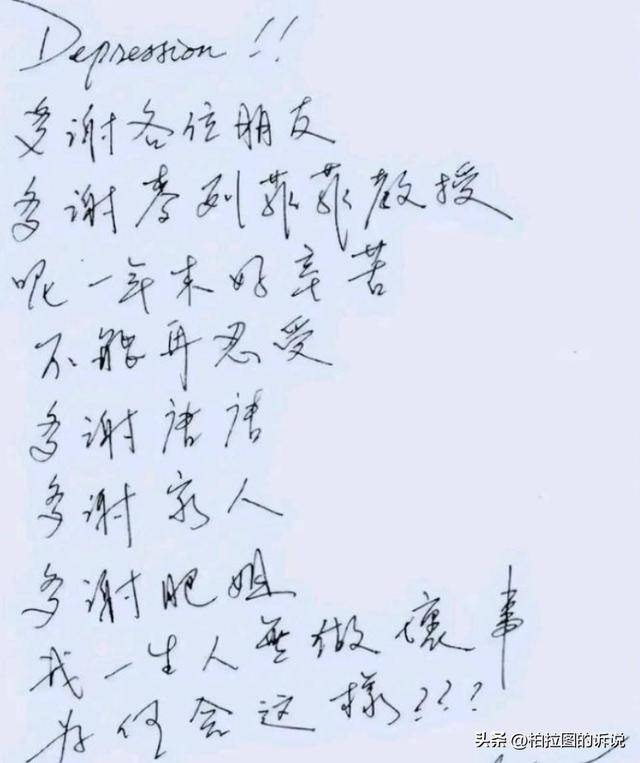 Depression!!
多谢各位朋友
多谢麥列菲菲教授
呢一年来好辛苦
不能再忍受
多谢唐唐
多谢家人
多谢肥姐
我一生人無做壞事
为何会这樣???
头条 @柏拉图的诉说